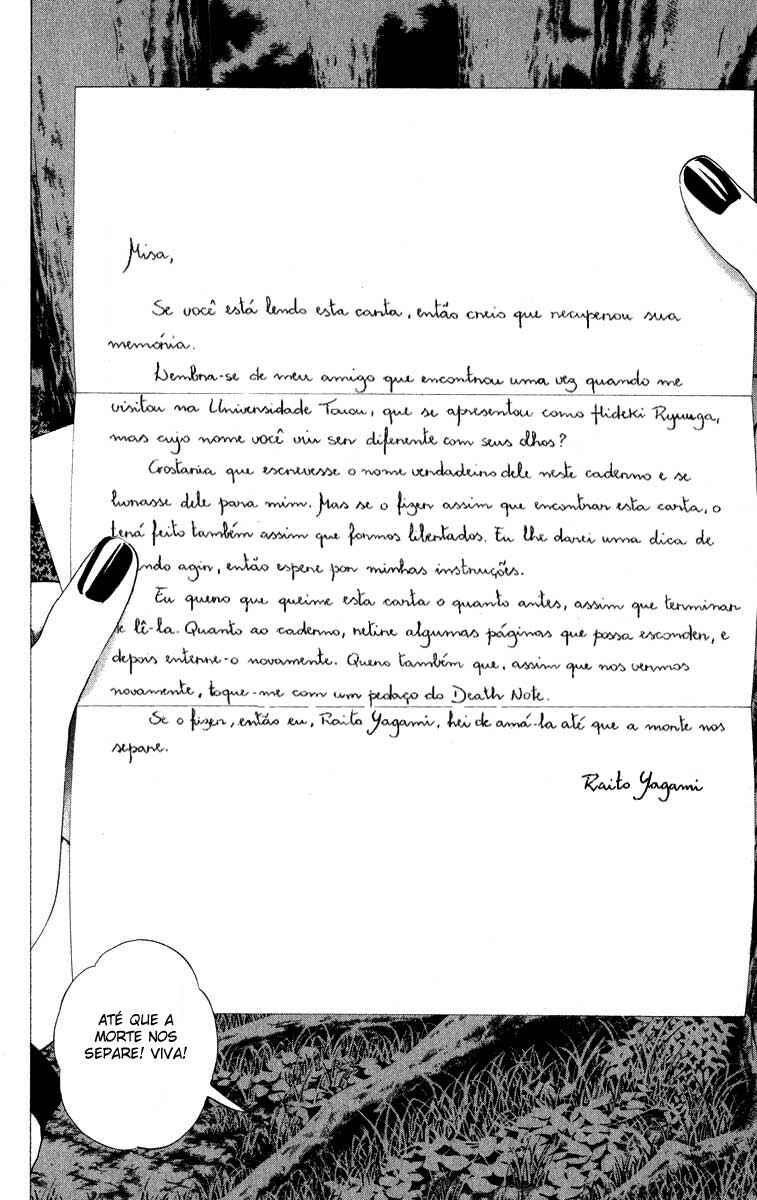 Misa,
Se você está lendo esta carta, então creio que recuperou sua
memória.
Lembra-se de meu amigo que encontrou uma vez quando me
visitou na Universidade Touou, que se apresentou como Hideki Ryuuga,
mas cujo nome você viu ser diferente com seus olhos?
Gostaria que escrevesse o nome verdadeiro dele neste caderno e se
livrasse dele para mim. Mas se o fizer assim que encontrar esta carta, o
terá feito também assim que formos libertados. Eu lhe darei uma dica de
ndo agir, então espere por minhas instruções.
Eu quero que queime esta carta o quanto antes, assim que terminar
de lê-la. Quanto ao caderno, retire algumas páginas que possa esconder, e
depois enterre-o novamente. Quero também que, assim que nos vermos
novamente, toque-me com um pedaço do Death Note.
Se o fizer, então eu, Raito Yagami, hei de amá-la até que a morte nos
separe.
Raito Yagami
ATÉ QUE A
MORTE NOS
SEPARE! VIVA!